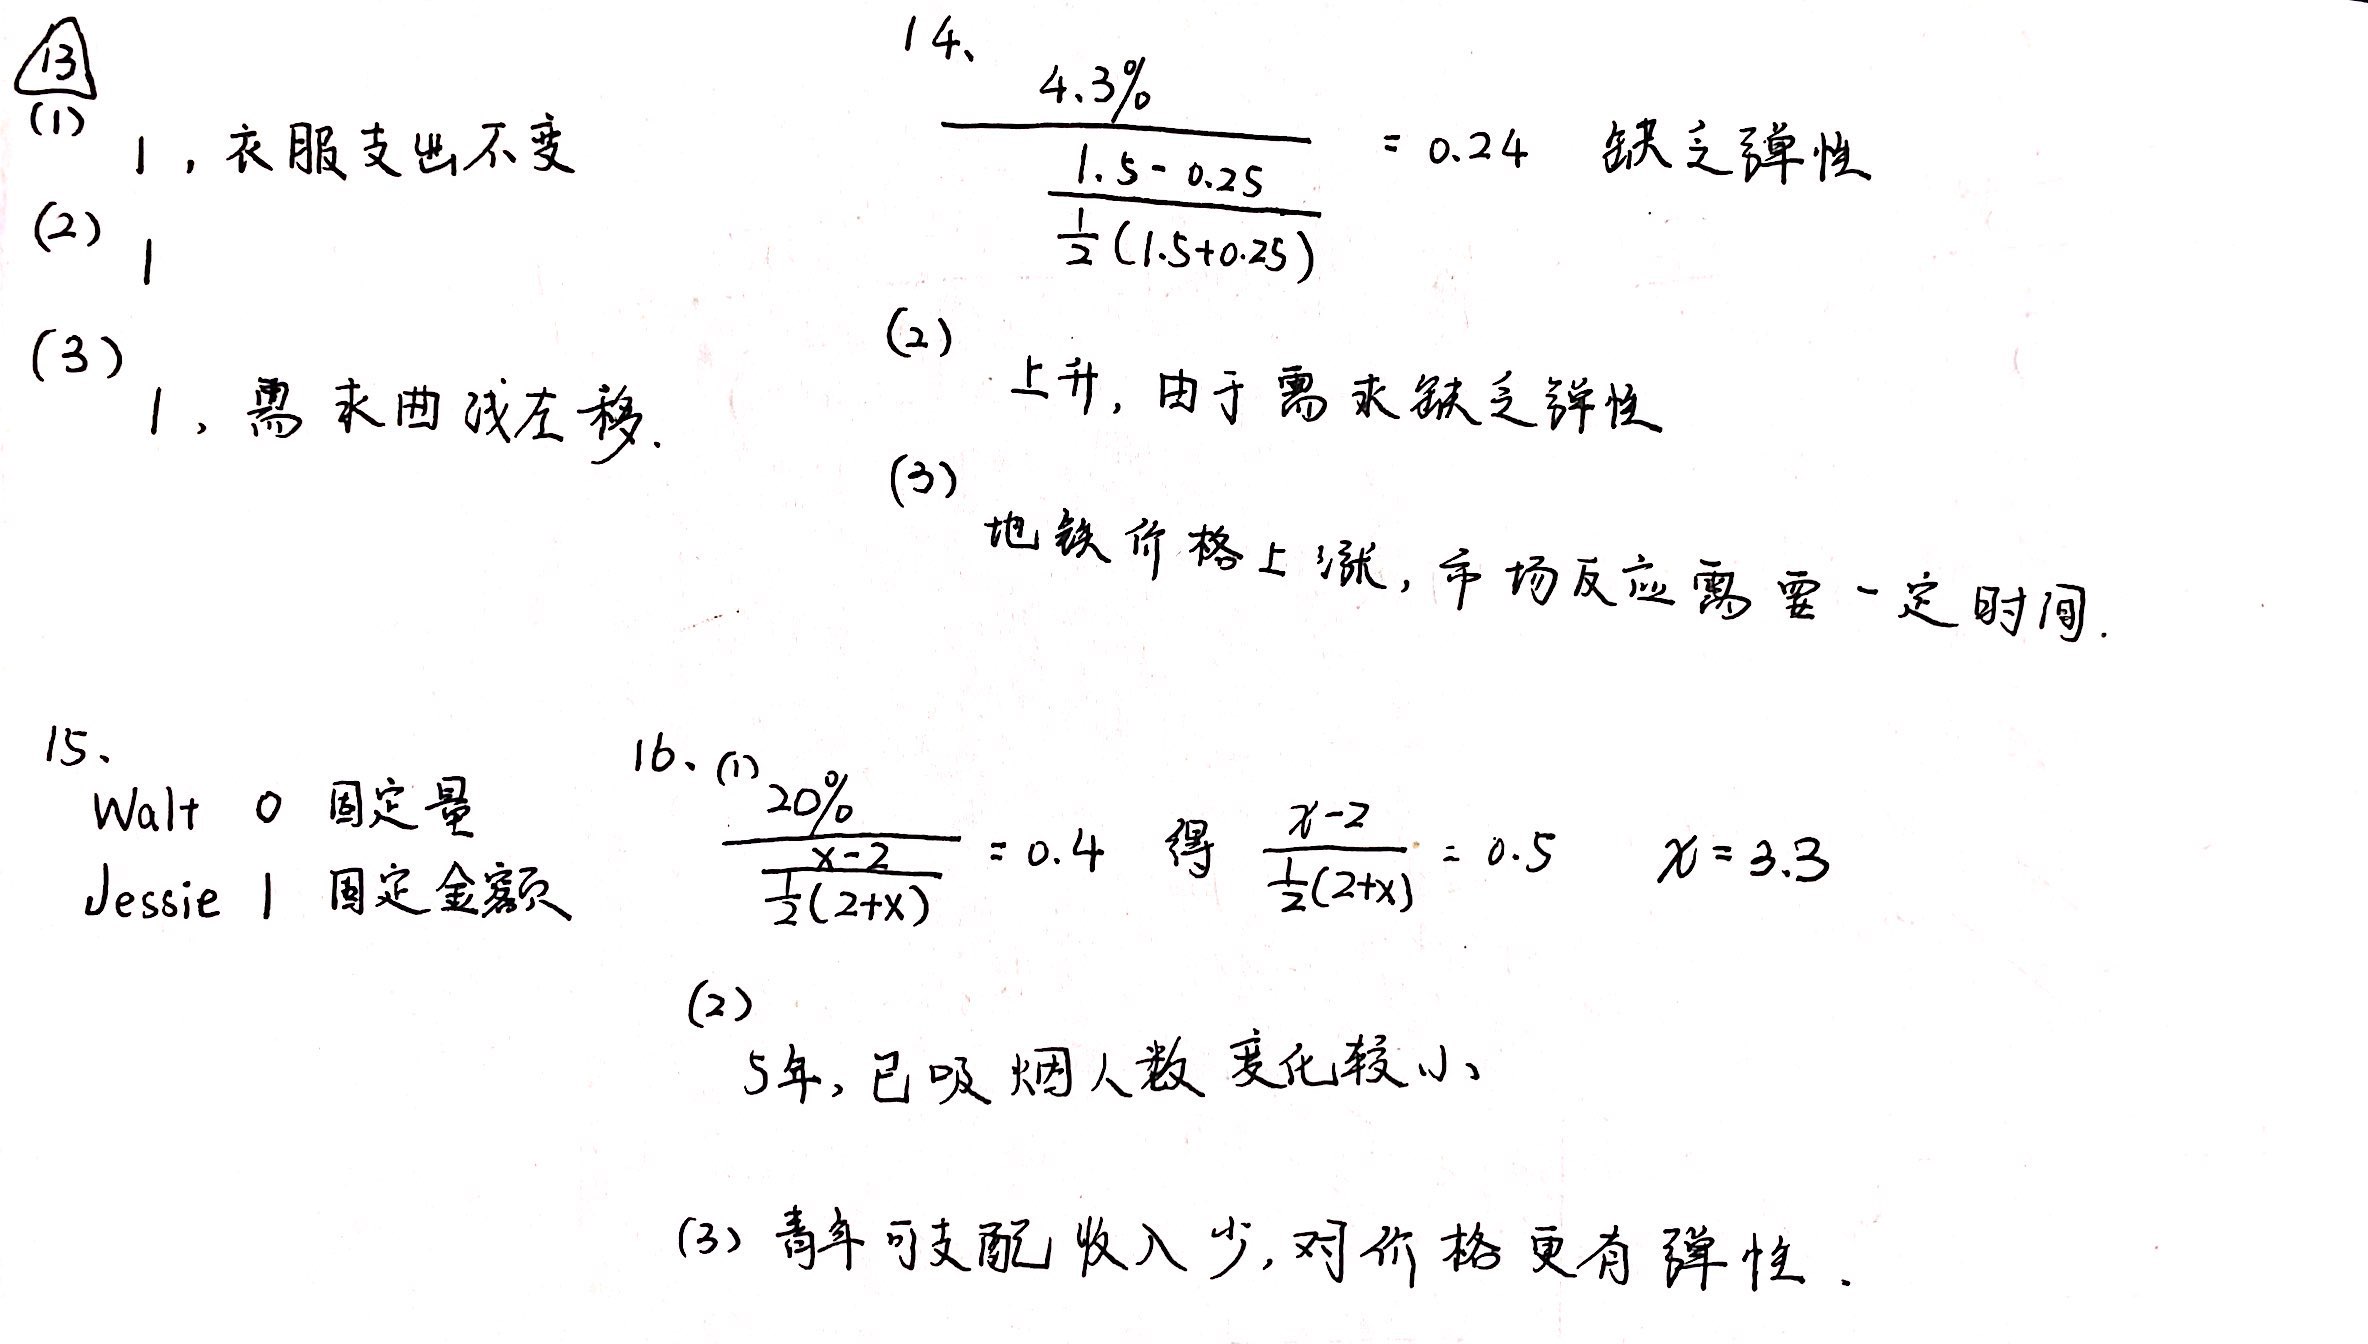 13
(1) 1，衣服支出不变
(2) 1
(3) 1，需求曲线左移.
14、
4.3%
1.5-0.25
1/2(1.5+0.25)
= 0.24 缺乏弹性
(2) 上升，由于需求缺乏弹性
(3) 地铁价格上涨，市场反应需要一定时间.
15、
Walt 0 固定量
Jessie 1 固定金额
16、(1)
20%
x-2
1/2(2+x)
= 0.4 得
x-2
1/2(2+x)
= 0.5 x=3.3
(2) 5年，已吸烟人数变化较小、
(3) 青年可支配收入少，对价格更有弹性.